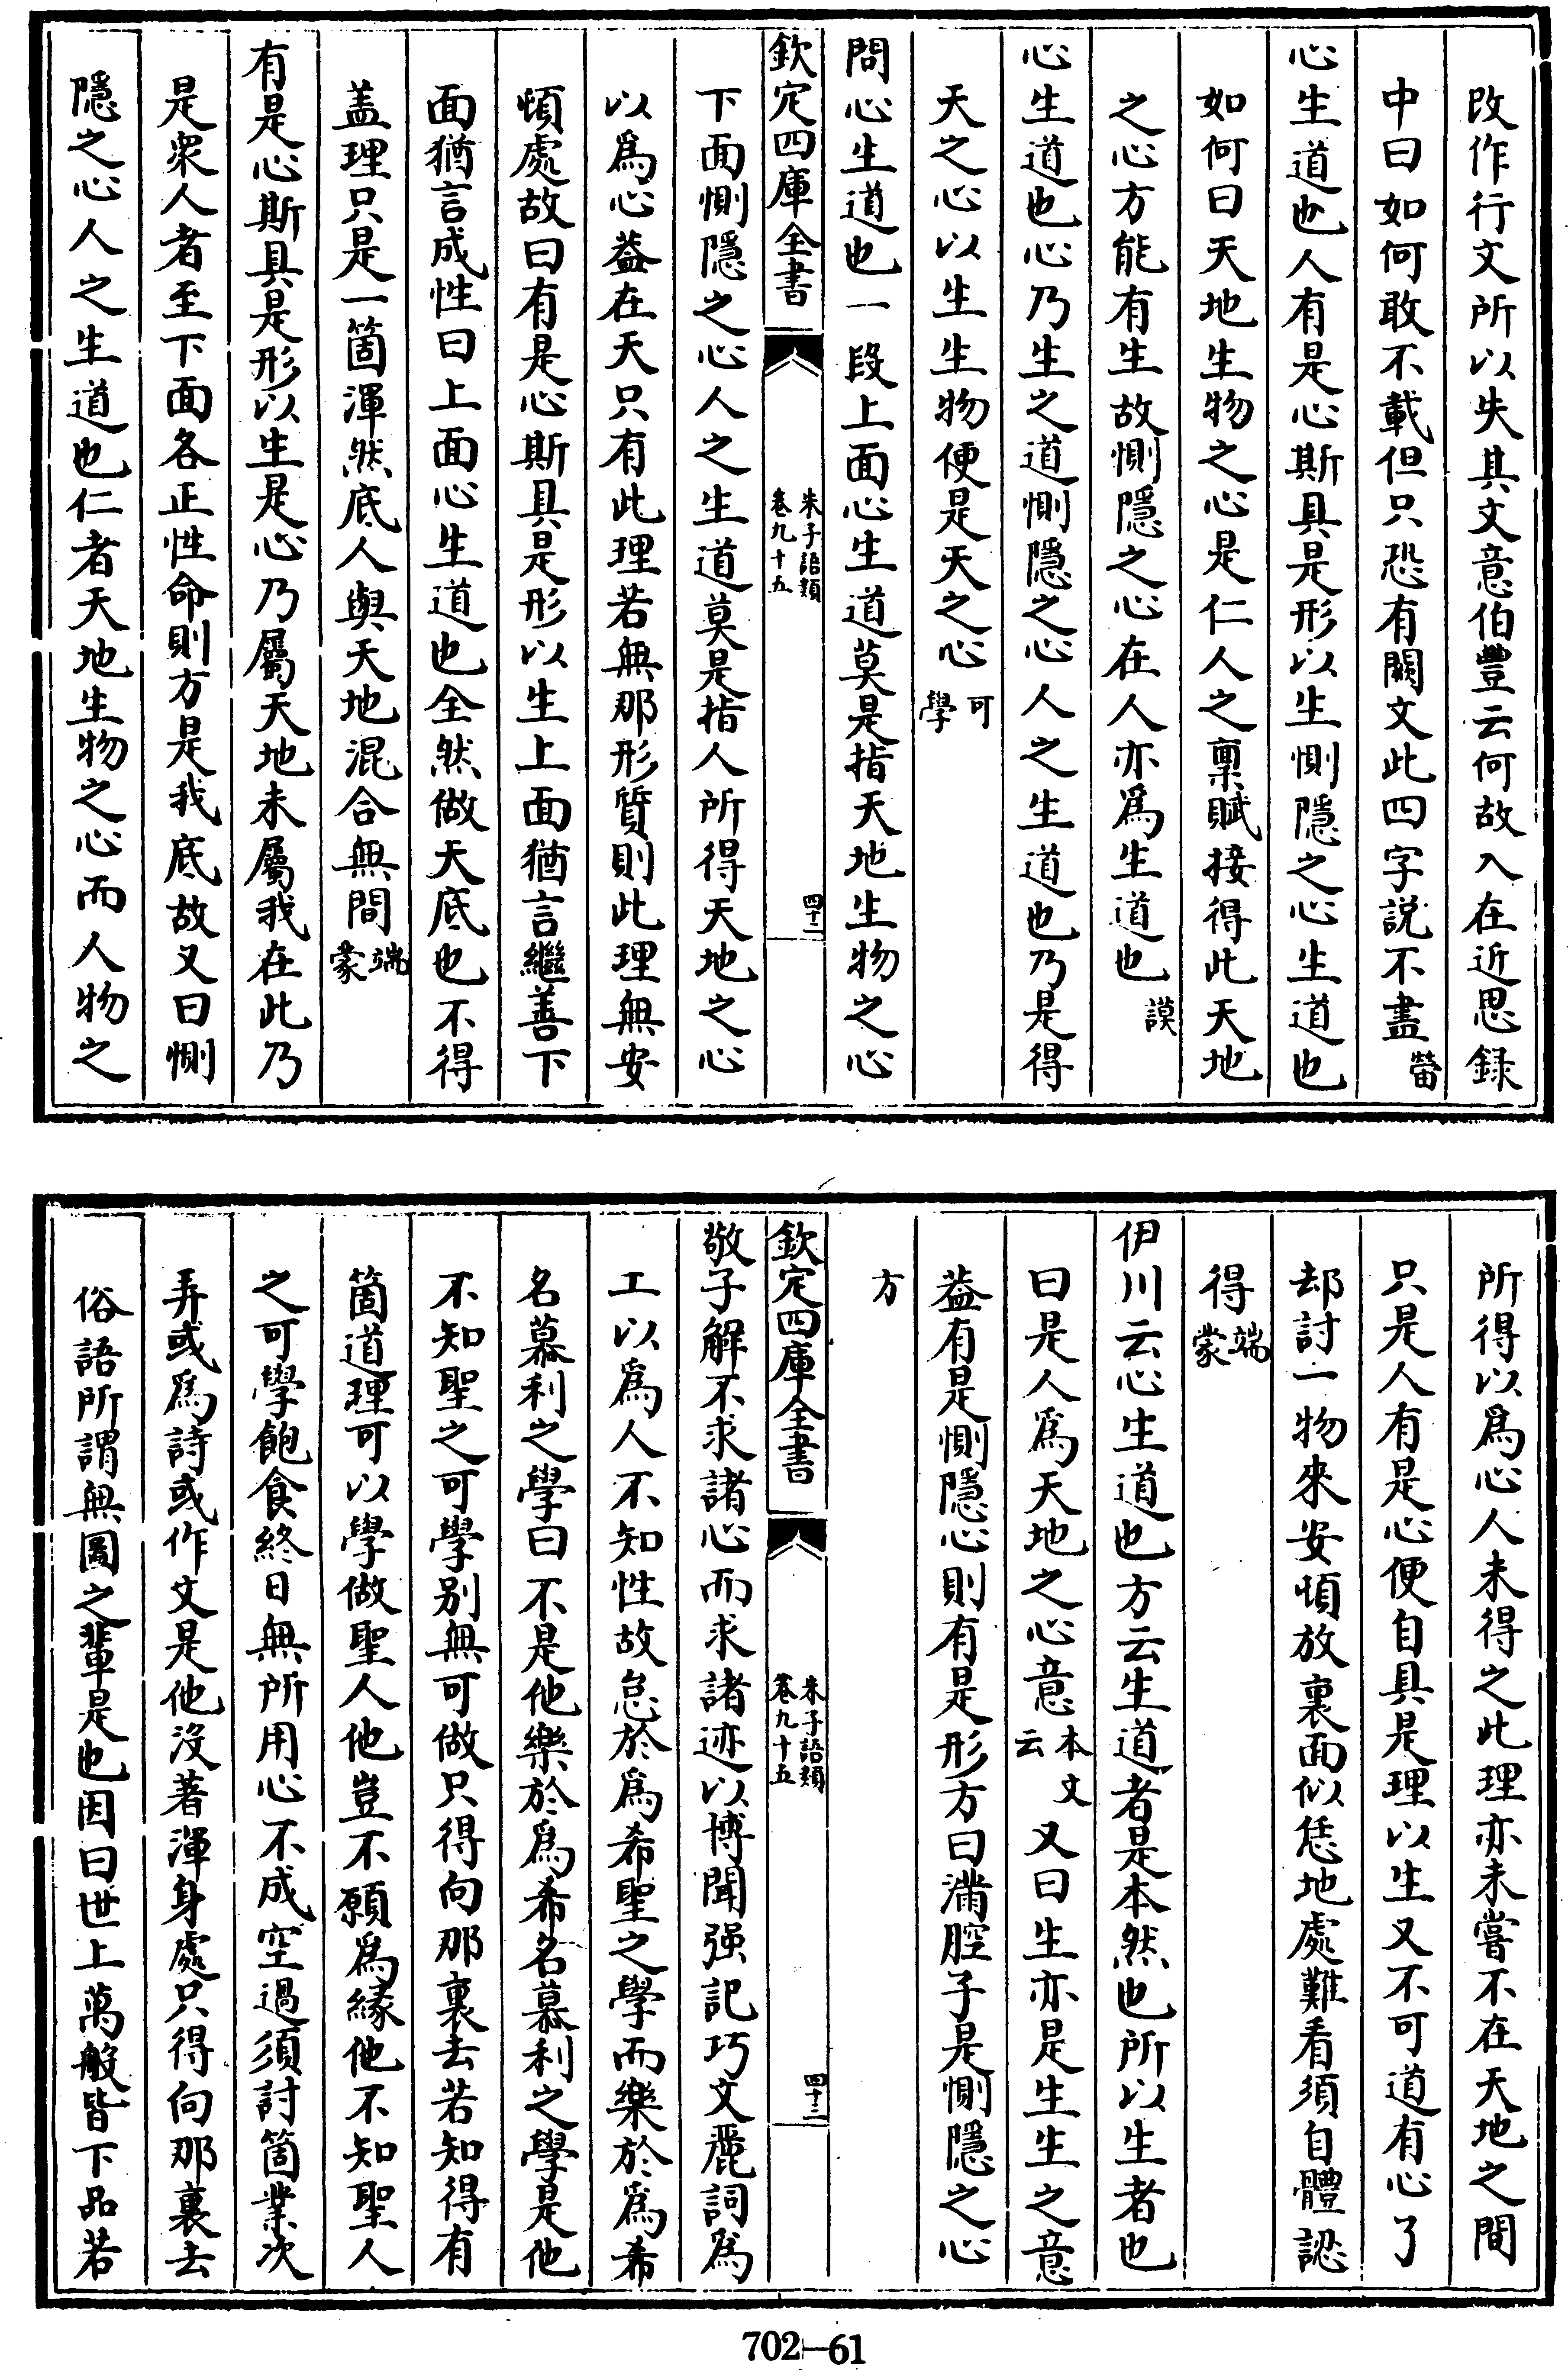 改作行文所以失其文意伯豐云何故入在近思録
中曰如何敢不載但只恐有闕文此四字説不盡㽦
心生道也人有是心斯具是形以生惻隱之心生道也
如何曰天地生物之心是仁人之稟賦接得此天地
之心方能有生故惻隱之心在人亦為生道也謨
心生道也心乃生之道惻隱之心人之生道也乃是得
天之心以生生物便是天之心可學
問心生道也一段上面心生道莫是指天地生物之心
欽定四庫全書
朱子語類
卷九十五
四十二
下面惻隱之心人之生道莫是指人所得天地之心
以為心葢在天只有此理若無那形質則此理無安
頓處故曰有是心斯具是形以生上面猶言繼善下
面猶言成性曰上面心生道也全然做天底也不得
盖理只是一箇渾然底人與天地混合無間端蒙
有是心斯具是形以生是心乃屬天地未屬我在此乃
是衆人者至下面各正性命則方是我底故又曰惻
隱之心人之生道也仁者天地生物之心而人物之
所得以為心人未得之此理亦未嘗不在天地之間
只是人有是心便自具是理以生又不可道有心了
却討一物來安頓放裏面似恁地處難看須自體認
得端蒙
伊川云心生道也方云生道者是本然也所以生者也
曰是人為天地之心意本文云又曰生亦是生生之意
葢有是惻隱心則有是形方曰滿腔子是惻隱之心
方
欽定四庫全書
朱子語類
卷九十五
四十三
敬子解不求諸心而求諸迹以博聞强記巧文麗詞為
工以為人不知性故怠於為希聖之學而樂於為希
名慕利之學曰不是他樂於為希名慕利之學是他
不知聖之可學别無可做只得向那裏去若知得有
箇道理可以學做聖人他豈不願為緣他不知聖人
之可學飽食終日無所用心不成空過須討箇業次
弄或為詩或作文是他没著渾身處只得向那裏去
俗語所謂無圖之輩是也因曰世上萬般皆下品若
702—61